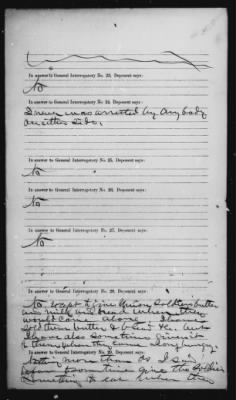 In answer to General Interrogatory No. 23, Deponent says:
No
In answer to General Interrogatory No. 24, Deponent says:
I never was arrested by any body
on either side.
In answer to General Interrogatory No. 25, Deponent says:
No
In answer to General Interrogatory No. 26, Deponent says:
No
In answer to General Interrogatory No. 27, Deponent says:
No
In answer to General Interrogatory No. 28, Deponent says:
No except I give Union Soldiers butter
and milk and bread when they
would come along. I
sold them butter & bread &c. but
I have also sometimes given it
to them when they came along hungry.
In answer to General Interrogatory No. 29, Deponent says:
Nothing more than as I said
before sometimes give the soldier
something to eat when they